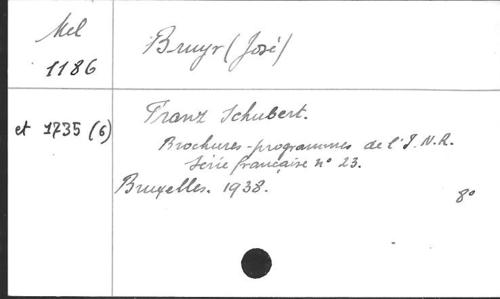 Mel
1186
Bruyr (José)
et 1735 (6)
Franz Schubert.
Brochures-programmes de l'I.N.R.
Série française n° 23.
Bruxelles. 1938.
8°